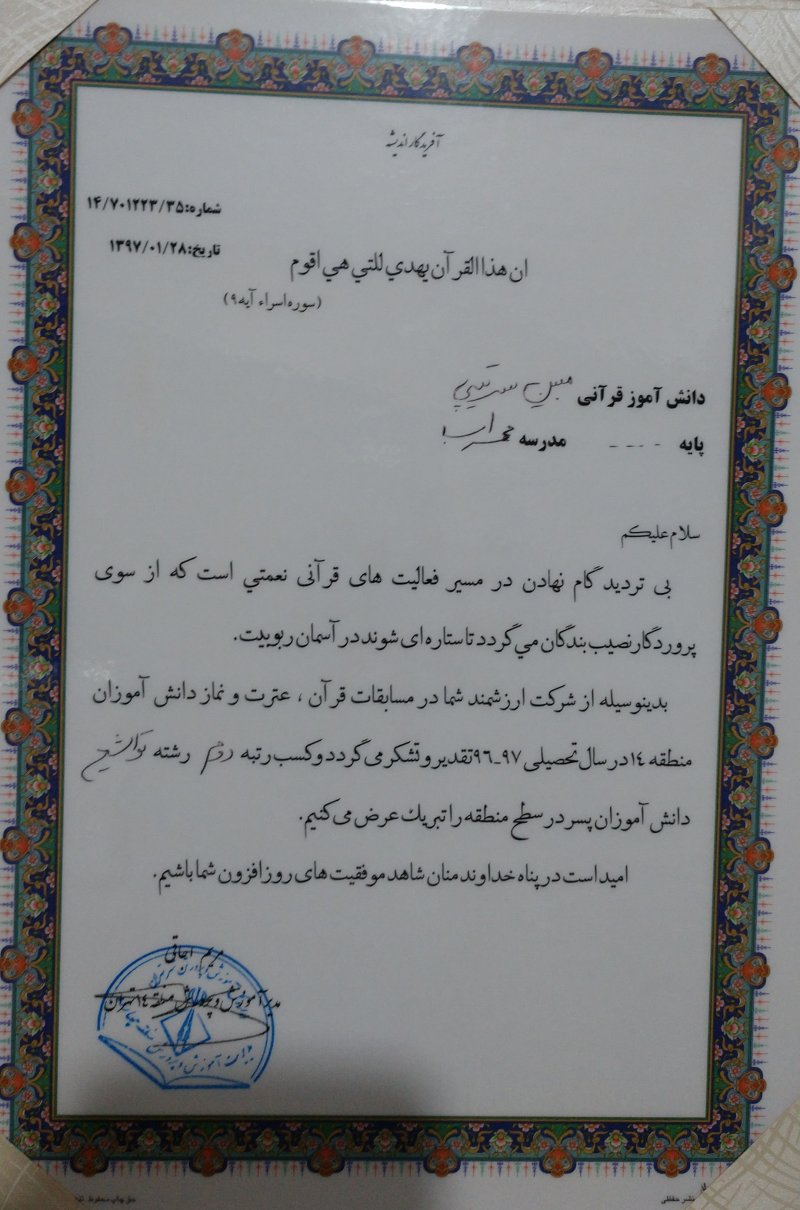 آفریدگار اندیشه
شماره:۱۴/۷۰۱۲۲۳/۳۵
تاریخ:۱۳۹۷/۰۱/۲۸
ان هذا القرآن يهدي للتي هي اقوم
(سوره اسراء آیه ۹)
دانش آموز قرآنی مبین سرتیپی
پایه ---- مدرسه محراب
سلام علیکم
بی تردید گام نهادن در مسیر فعالیت های قرآنی نعمتي است که از سوی
پروردگار نصیب بندگان مي گردد تا ستاره ای شوند در آسمان ربوبیت.
بدینوسیله از شرکت ارزشمند شما در مسابقات قرآن ، عترت و نماز دانش آموزان
منطقه ۱۴ در سال تحصیلی ۹۷-۹۶ تقدیر و تشکر می گردد و کسب رتبه دوم رشته تواشیح
دانش آموزان پسر در سطح منطقه را تبریك عرض می کنیم.
امید است در پناه خداوند منان شاهد موفقیت های روز افزون شما باشیم.
مریم
مدیر آموزش و پرورش منطقه ۱۴ تهران